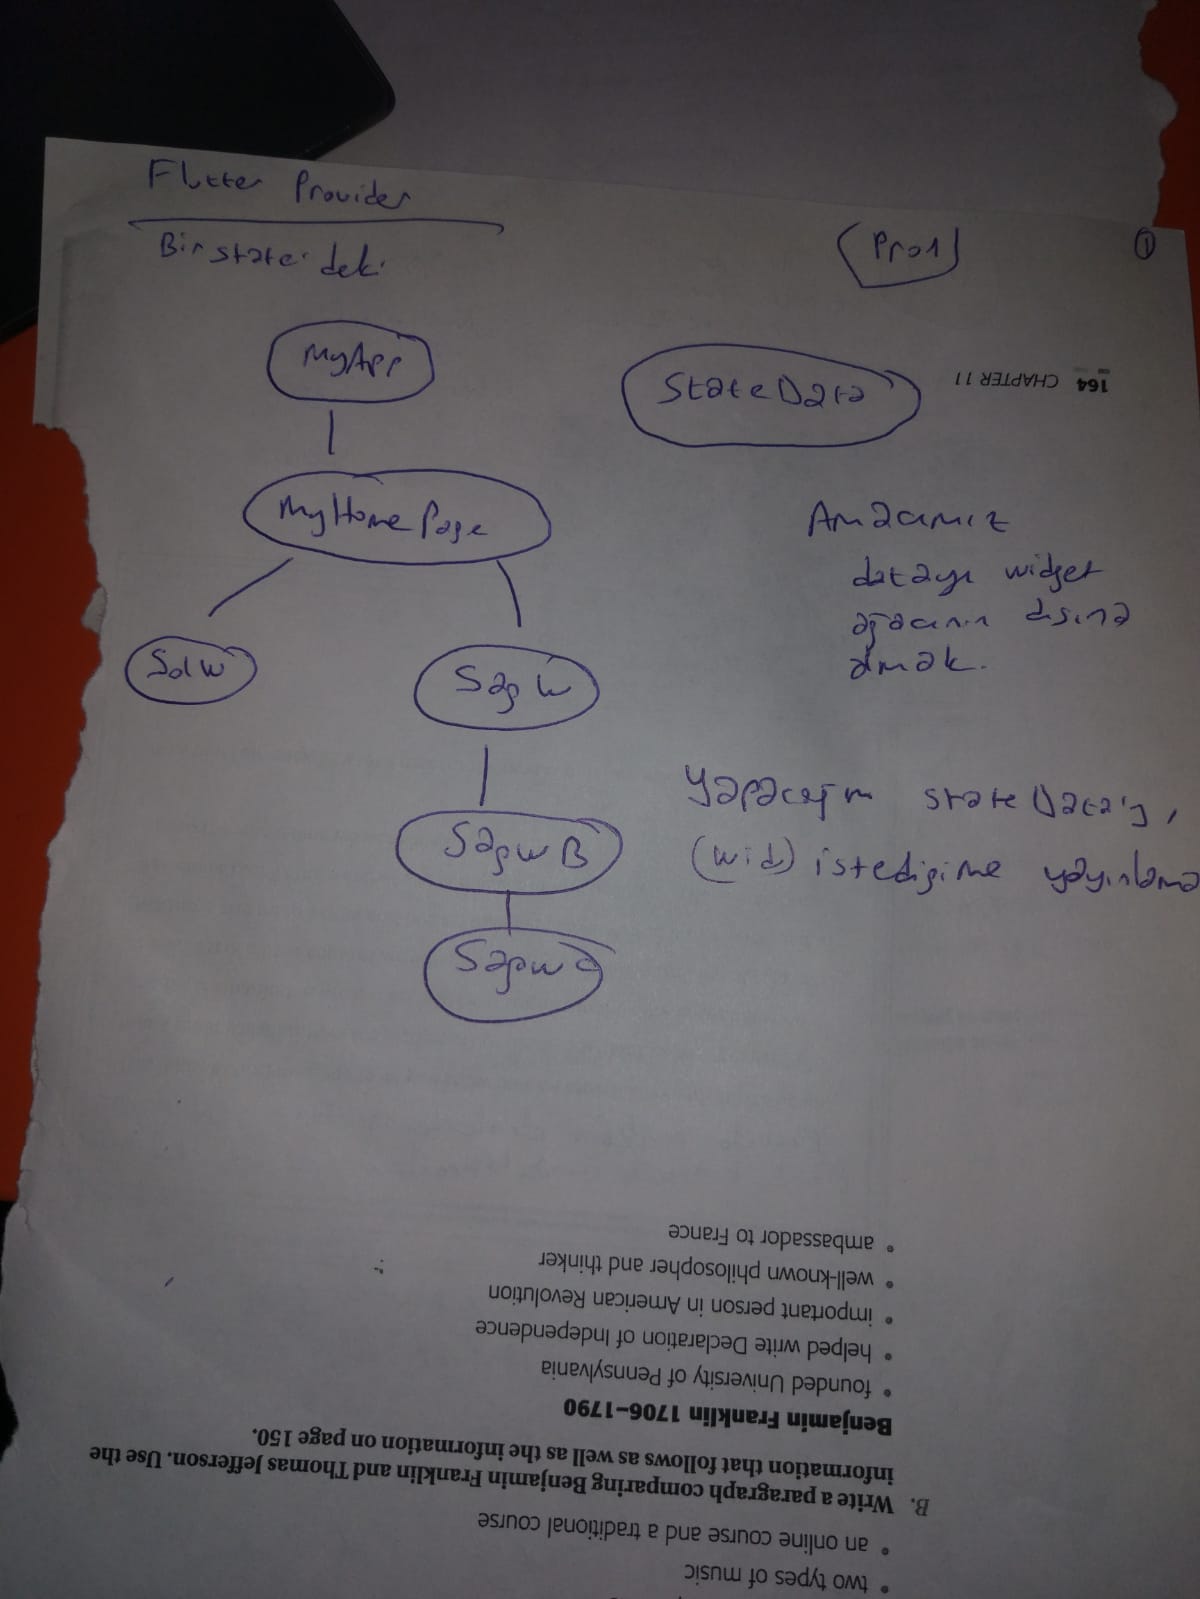 Flutter Provider
Bir state'deki
Pro1
1
MyApp
StateData
164 CHAPTER 11
MyHomePage
Amacımız
datayı widget
ağacının dışına
almak.
SolW
SağW
Yapacağım stateData'yı,
(wid) istediğime yayınlama
SağWB
SağWC
two types of music
an online course and a traditional course
B. Write a paragraph comparing Benjamin Franklin and Thomas Jefferson. Use the
information that follows as well as the information on page 150.
Benjamin Franklin 1706–1790
• founded University of Pennsylvania
• helped write Declaration of Independence
• important person in American Revolution
• well-known philosopher and thinker
• ambassador to France